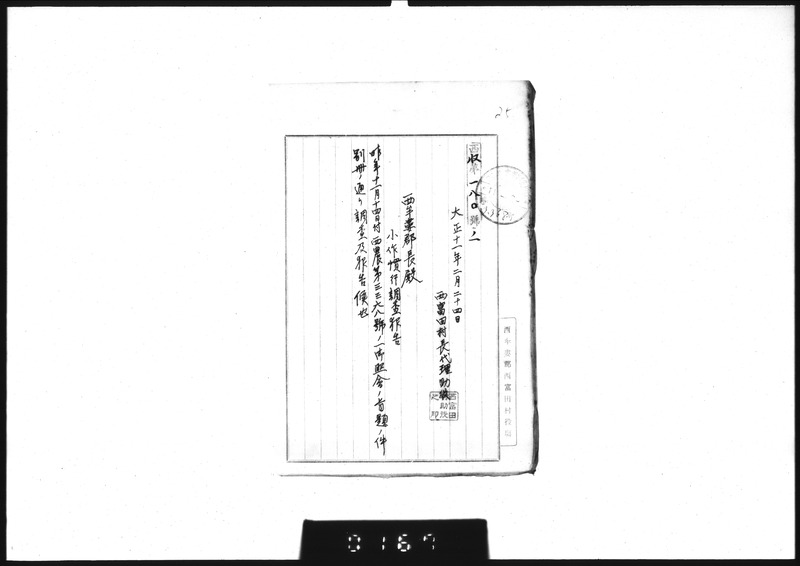 25
西収第一八〇號ノ一
大正十一年二月二十四日
西富田村長代理助役
西富田村助役之印
西牟婁郡長殿
小作慣行調査報告
昨年十一月十四日付西農第三三六八號ノ一御照会ノ首題ノ件
別冊ノ通リ調査及報告候也
西牟婁郡西富田村役場
0167